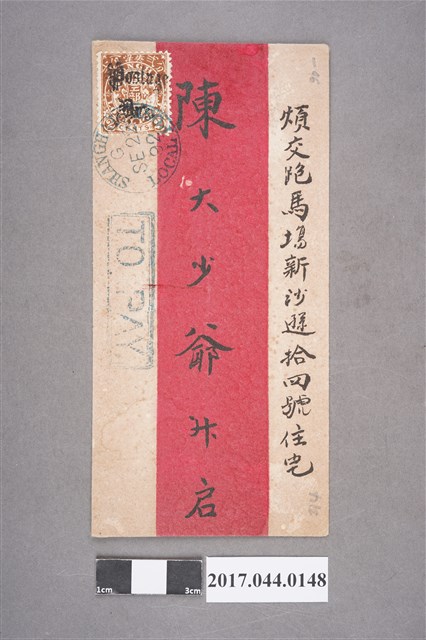 煩交跑馬場新沙遜拾四號住宅
陳大少爺升启
Postage
Due
SHANGHAI
LOCAL
G
SE 22
02
TO PAY
1cm
3cm
2017.044.0148